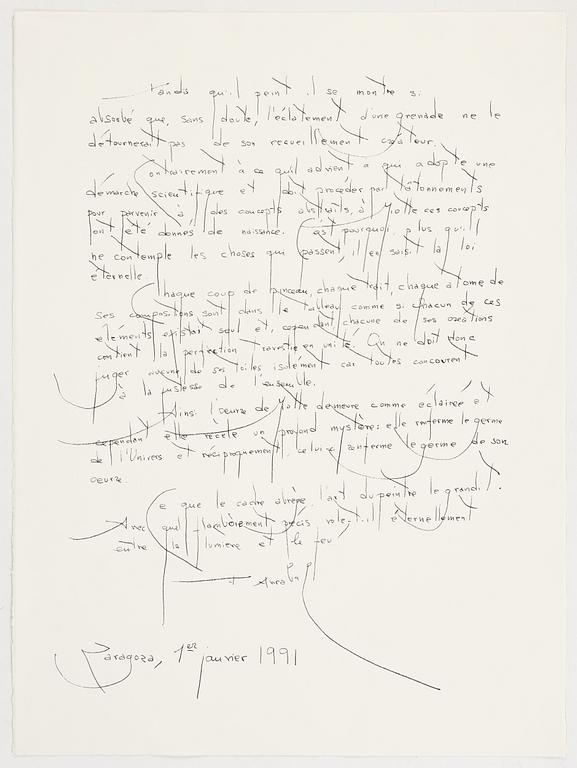 Tandis qu'il peint il se montre si
absorbé que, sans doute, l'éclatement d'une grenade ne le
détournerait pas de son recueillement créateur.
Contrairement à ce qu'il advient à qui adopte une
démarche scientifique et doit procéder par tâtonnements
pour parvenir à des concepts abstraits, à ces concepts
ont été donnés de naissance. C'est pourquoi, plus qu'il
ne contemple les choses qui passent, il en saisit la loi
éternelle.
Chaque coup de pinceau, chaque trait, chaque atome de
ses compositions sont dans le tableau comme si chacun de ces
éléments existait seul et, cependant chacune de ses créations
contient la perfection travestie en unité. On ne doit donc
juger aucune de ses toiles isolément car toutes concourent
à la justesse de l'ensemble.
Ainsi l'oeuvre de demeure comme éclairée et
cependant elle recèle un profond mystère: elle renferme le germe
de l'Univers et réciproquement celui-ci renferme le germe de son
oeuvre.
Ce que le cadre abrège, l'art du peintre le grandit.
Avec quel flamboiement précis vole-t-il éternellement
entre la lumière et le feu!
Zaragoza, 1er janvier 1991